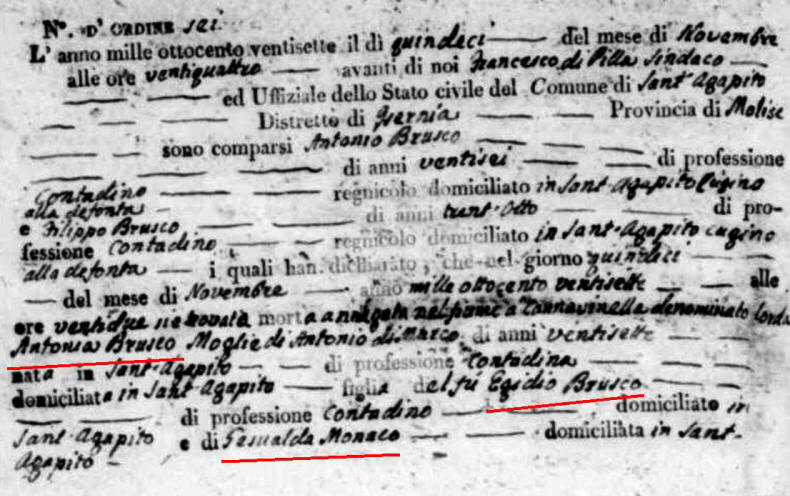 N°. D'ORDINE sei.
L'anno mille ottocento ventisette il dì quindeci del mese di Novembre
alle ore ventiquattro avanti di noi Francesco di Pilla Sindaco
ed Uffiziale dello Stato civile del Comune di Sant'Agapito
Distretto di Isernia Provincia di Molise
sono comparsi Antonio Brusco
di anni ventisei di professione
Contadino regnicolo domiciliato in Sant-Agapito Cugino
alla defonta
e Filippo Brusco di anni trent'Otto di pro-
fessione Contadino regnicolo domiciliato in Sant-Agapito cugino
alla defonta i quali han dichiarato, che nel giorno quindeci
del mese di Novembre anno mille ottocento ventisette alle
ore ventidue si è trovata morta annegata nel fiume a denominato
Antonia Brusco Moglie di Antonio di Marco, di anni ventisette
nata in Sant-Agapito di professione Contadina
domiciliata in Sant Agapito figlia del fu Egidio Brusco
di professione Contadino domiciliato in
Sant-Agapito e di Pasualda Monaco domiciliata in Sant-
Agapito